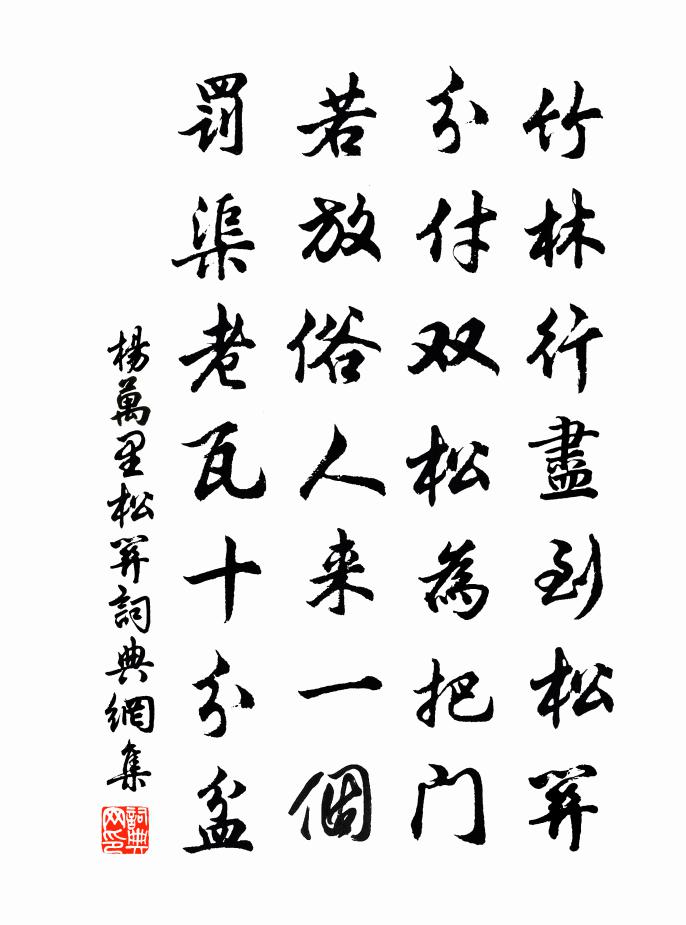 竹林行盡到松關
分付双松為把门
若放俗人来一個
罰渠老瓦十分盆
楊萬里松關詞典網集
詞典
网印